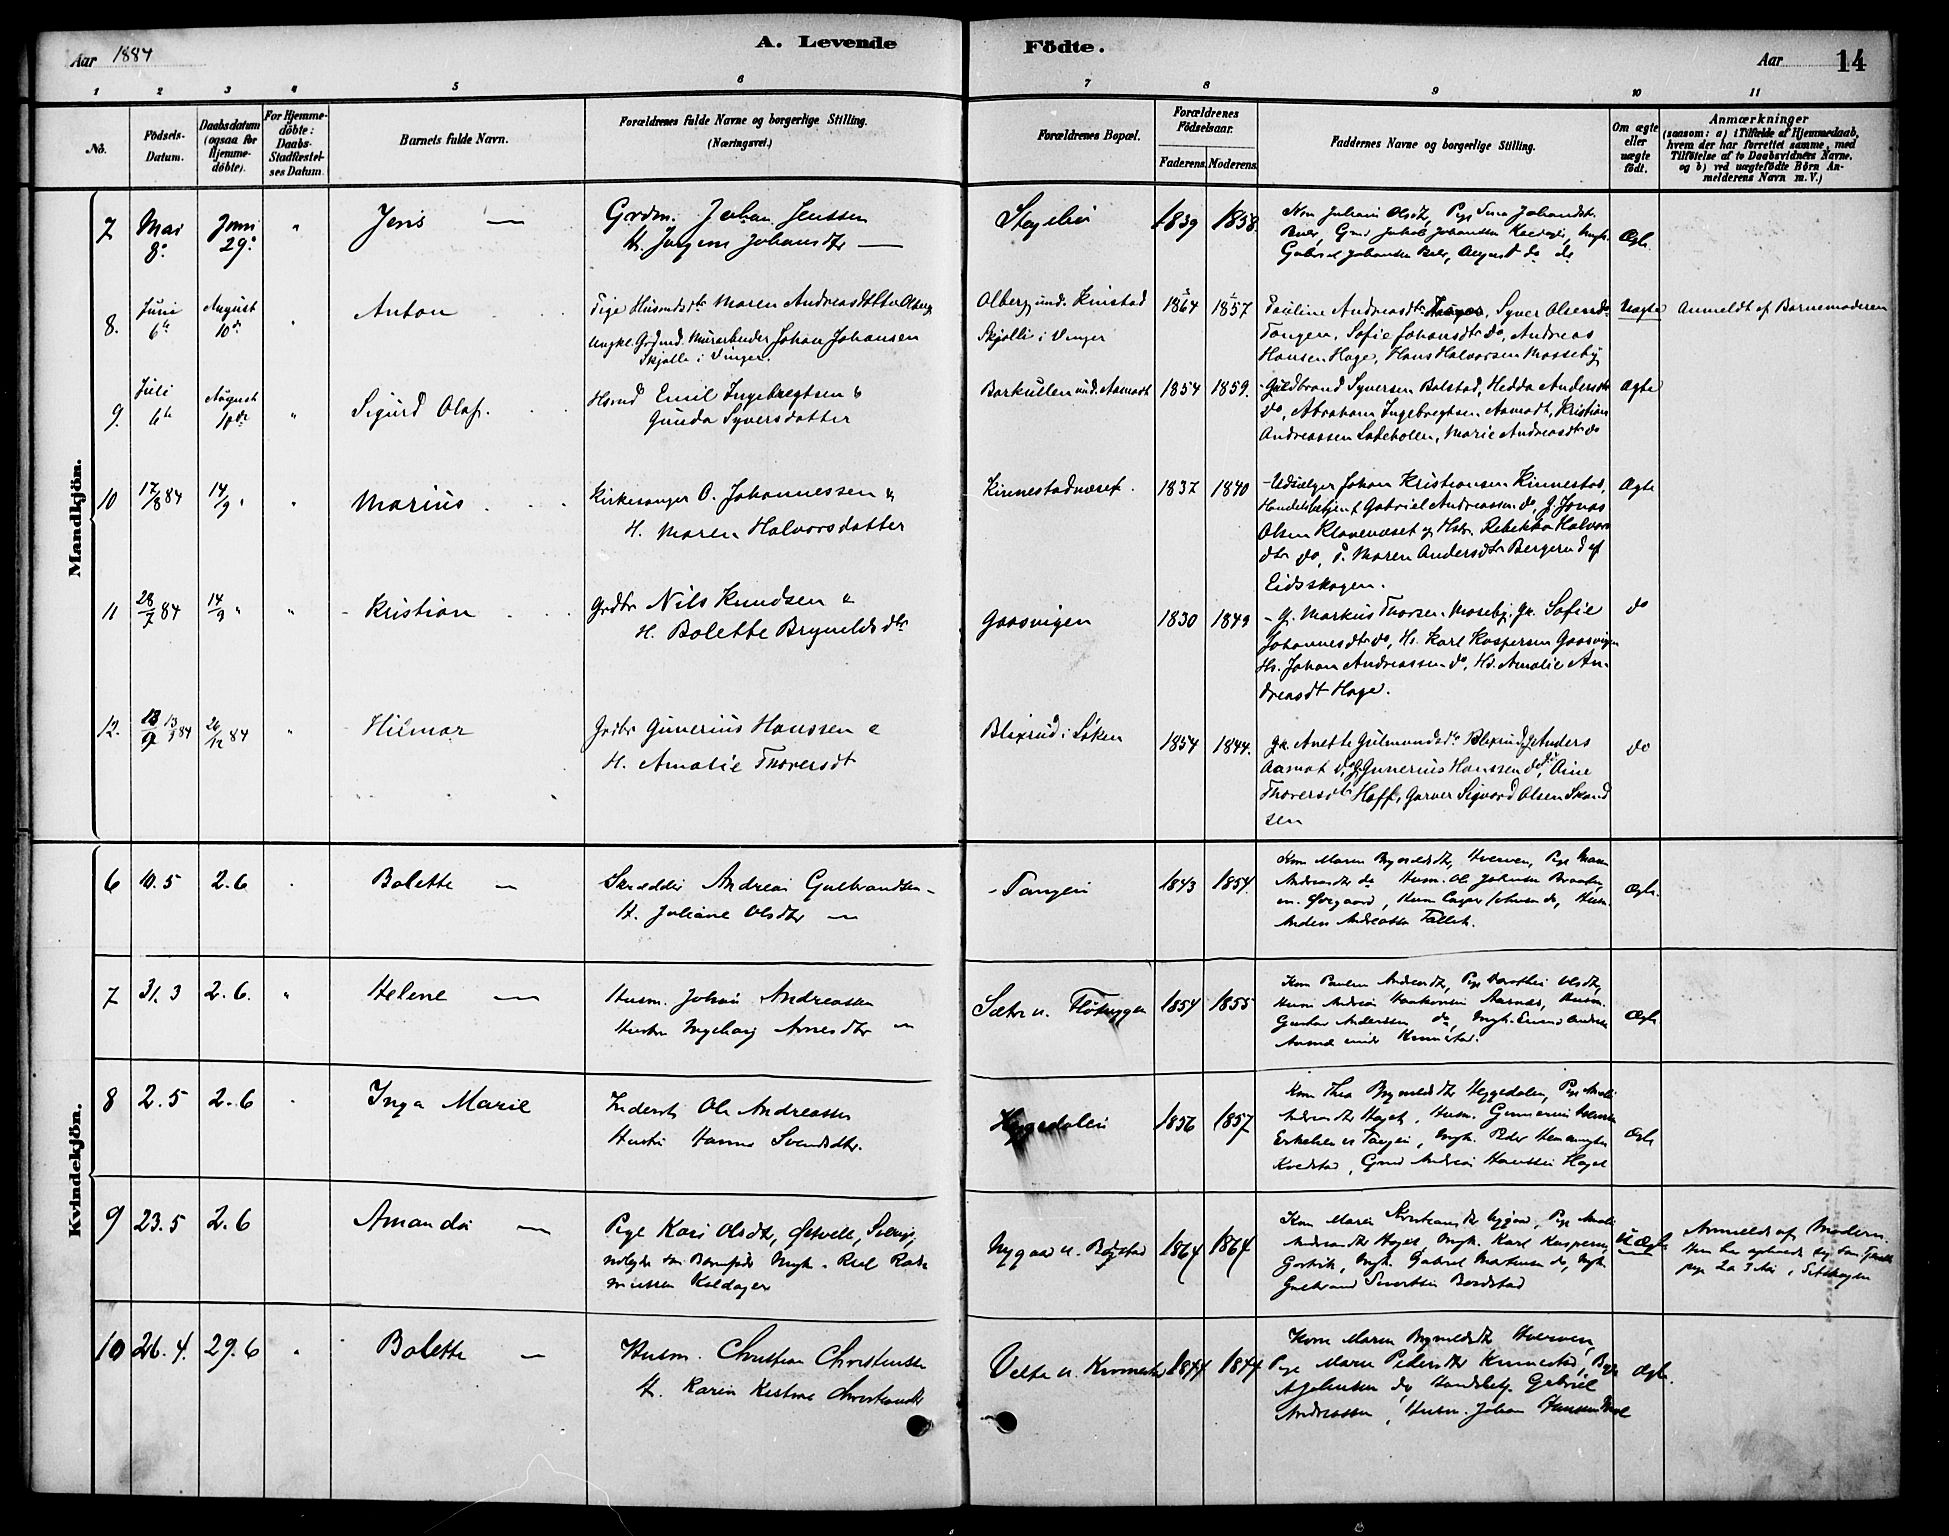 Aar 1884
A. Levende
Födte.
Aar
14
1 2 3 4 5 6 7 8 9 10 11
No.
Födsels-
Datum.
Daabsdatum
(ogsaa for
Hjemme-
döbte).
For Hjemme-
döbte:
Daabs-
Stadfæstel-
ses Datum
Barnets fulde Navn.
Forældrenes fulde Navne og borgerlige Stilling.
(Næringsvei.)
Forældrenes Bopæl.
Forældrenes
Födselsaar.
Faderens. Moderens.
Faddernes Navne og borgerlige Stilling.
Om ægte
eller
uægte
födt.
Anmærkninger
(saasom: a) i Tilfælde af Hjemmedaab,
hvem der har forrettet samme, med
Tilföielse af to Daabsvidners Navne,
og b) ved uægtefödte Börn An-
melderens Navn m. V.)
Mandkjön.
7 Mai 8. Juni 29. " Jens —
Grdm. Johan Jenssen
H. Jørgine Johansdtr —
1839 1858.
Ægte
8. Juni 6te August 10de " Anton
Pige Husmdsdtr Maren Andreasdtter Olberg
Ungkl. Grdmd. Murarbeider Johan Johansen
Skjølli i Vinger.
Olberg und. Kinstad
Skjølli i Vinger
1864 1857
Pauline Andreasdtr Tangen, Syver Olsen do
Tangen, Sofie Johansdtr do, Andreas
Hansen Hage, Hans Halvorsen Masseby
Uægte
Anmeldt af Barnemoderen
9. Juli 6te August 10de " Sigurd Olaf.
Hsmd Emil Ingebregtsen &
Gunda Syversdatter
Barkullen und. Aamodt
1854 1859.
Guldbrand Syversen Bolstad, Hedda Andersdtr
do, Abraham Ingebregtsen Aamodt, Kristian
Andreassen Ladeholen, Marie Andreasdtr do
Ægte
10 17/8 84 14/9 " " Marius
Kirkesanger O. Johannessen &
H. Maren Halvorsdatter
Kinnestadnæset.
1837 1840
Udsælger Johan Kristiansen Kinnestad,
Handelsbetjent Gabriel Andreassen do, G. Jonas
Olsen Klovenæset og Hstr. Rebekka Halvors
dtr do, P. Maren Andersdtr Bergerud af
Eidsskogen.
Ægte
11 28/7 84 14/9 " " Kristian
Grdbr Nils Knudsen &
H. Bolette Bryneldsdtr
Gaasvigen
1830 1849
G. Markus Thorsen Moseby, Gk. Sofie
Johannesdtr do, Hs. Karl Kaspersen Gaasvigen
Hs. Johan Andreassen do, Hd. Amalie An-
dreasdt Hage.
do
12. 13/9 84 26/12 84 " Hilmar
Grdbr Gunerius Hanssen &
H. Amalie Thoresdt
Blixrud i Søken
1854 1844.
Gk. Anette Gulmundsdtr Blixrud, G. Anders
Aamot do, G. Gunerius Hanssen do, Oline
Thoresdtr Hoff, Garver Sigvard Olsen Skand
sen
do
Kvindekjön.
6 10.5 2.6 Bolette —
Skrædder Andreas Gulbrandsen
H. Juliane Olsdtr —
Tangen
1843 1854.
Kone Maren Bryneldsdtr, Hverven, Pige Maren
Andreasdtr do
Anders Andreassen Tallet.
Ægte.
7 31.3 2.6. " Helene —
Husm. Johan Andreassen
Hustru Ingeborg Arnesdtr
Sæter u. Fløtbyggen
1854 1855
Kone Pauline Andreasdt, Pige Dorthea Olsdt,
Husm Andreas Haakonsen Aarnæs, Husm.
Gustav Anderssen do
under Kinnestad.
Ægte
8 2.5 2.6 Inga Marie
Inderst Ole Andreassen
Hustru Hanna Svendsdtr.
Heggedalen
1856 1857
Kone Thea Bryneldsdtr Heggedalen, Pige
Andreasdtr Haget, Husm. Gunerius
Tangen, Ungk. Peder Hemmingsen
Kvedstad, Grmd Andreas Hanssen Haget
Ægte
9 23.5 2.6 Amanda —
Pige Kari Olsdtr, Østvell, Sverige,
udlagt som Barnefader Ungk. Karl
Keldager
Nygaard u. Bøgstad
1864 1864
Kone Maren Kristiansdtr Nygaard, Pige
Andreasdtr Haget, Ungk. Karl Kaspersen,
Gorvik, Ungk. Gabriel Martinsen do, Ungk
Gulbrand Sivertsen Bordstad
Uægte
Anmeldt af Moderen.
Hun har opholdt sig som Tjeneste
pige 2 a 3 Md i Eidskogen
10 26.4. 29.6 " Bolette —
Husm. Christian Christensen
H. Karen Kristine Christiansdtr
Velta u. Kinnestad
1844 1844
Kone Maren Bryneldsdtr Hverven,
Pige Maren Pedersdtr Kinnestad,
do, Handelsbetj. Gabriel
Andreassen, Husm. Johan Hanssen
Ægte.